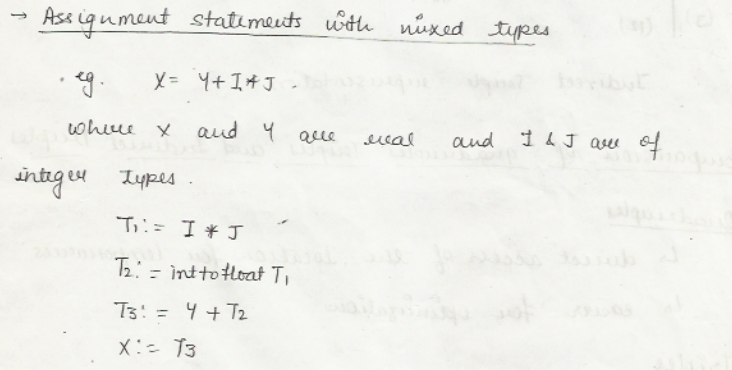 → Assignment statements with mixed types
. eg. X = Y + I * J .
where X and Y are real and I & J are of
integer types .
T1 := I * J
T2 := int to float T1
T3 := Y + T2
X := T3